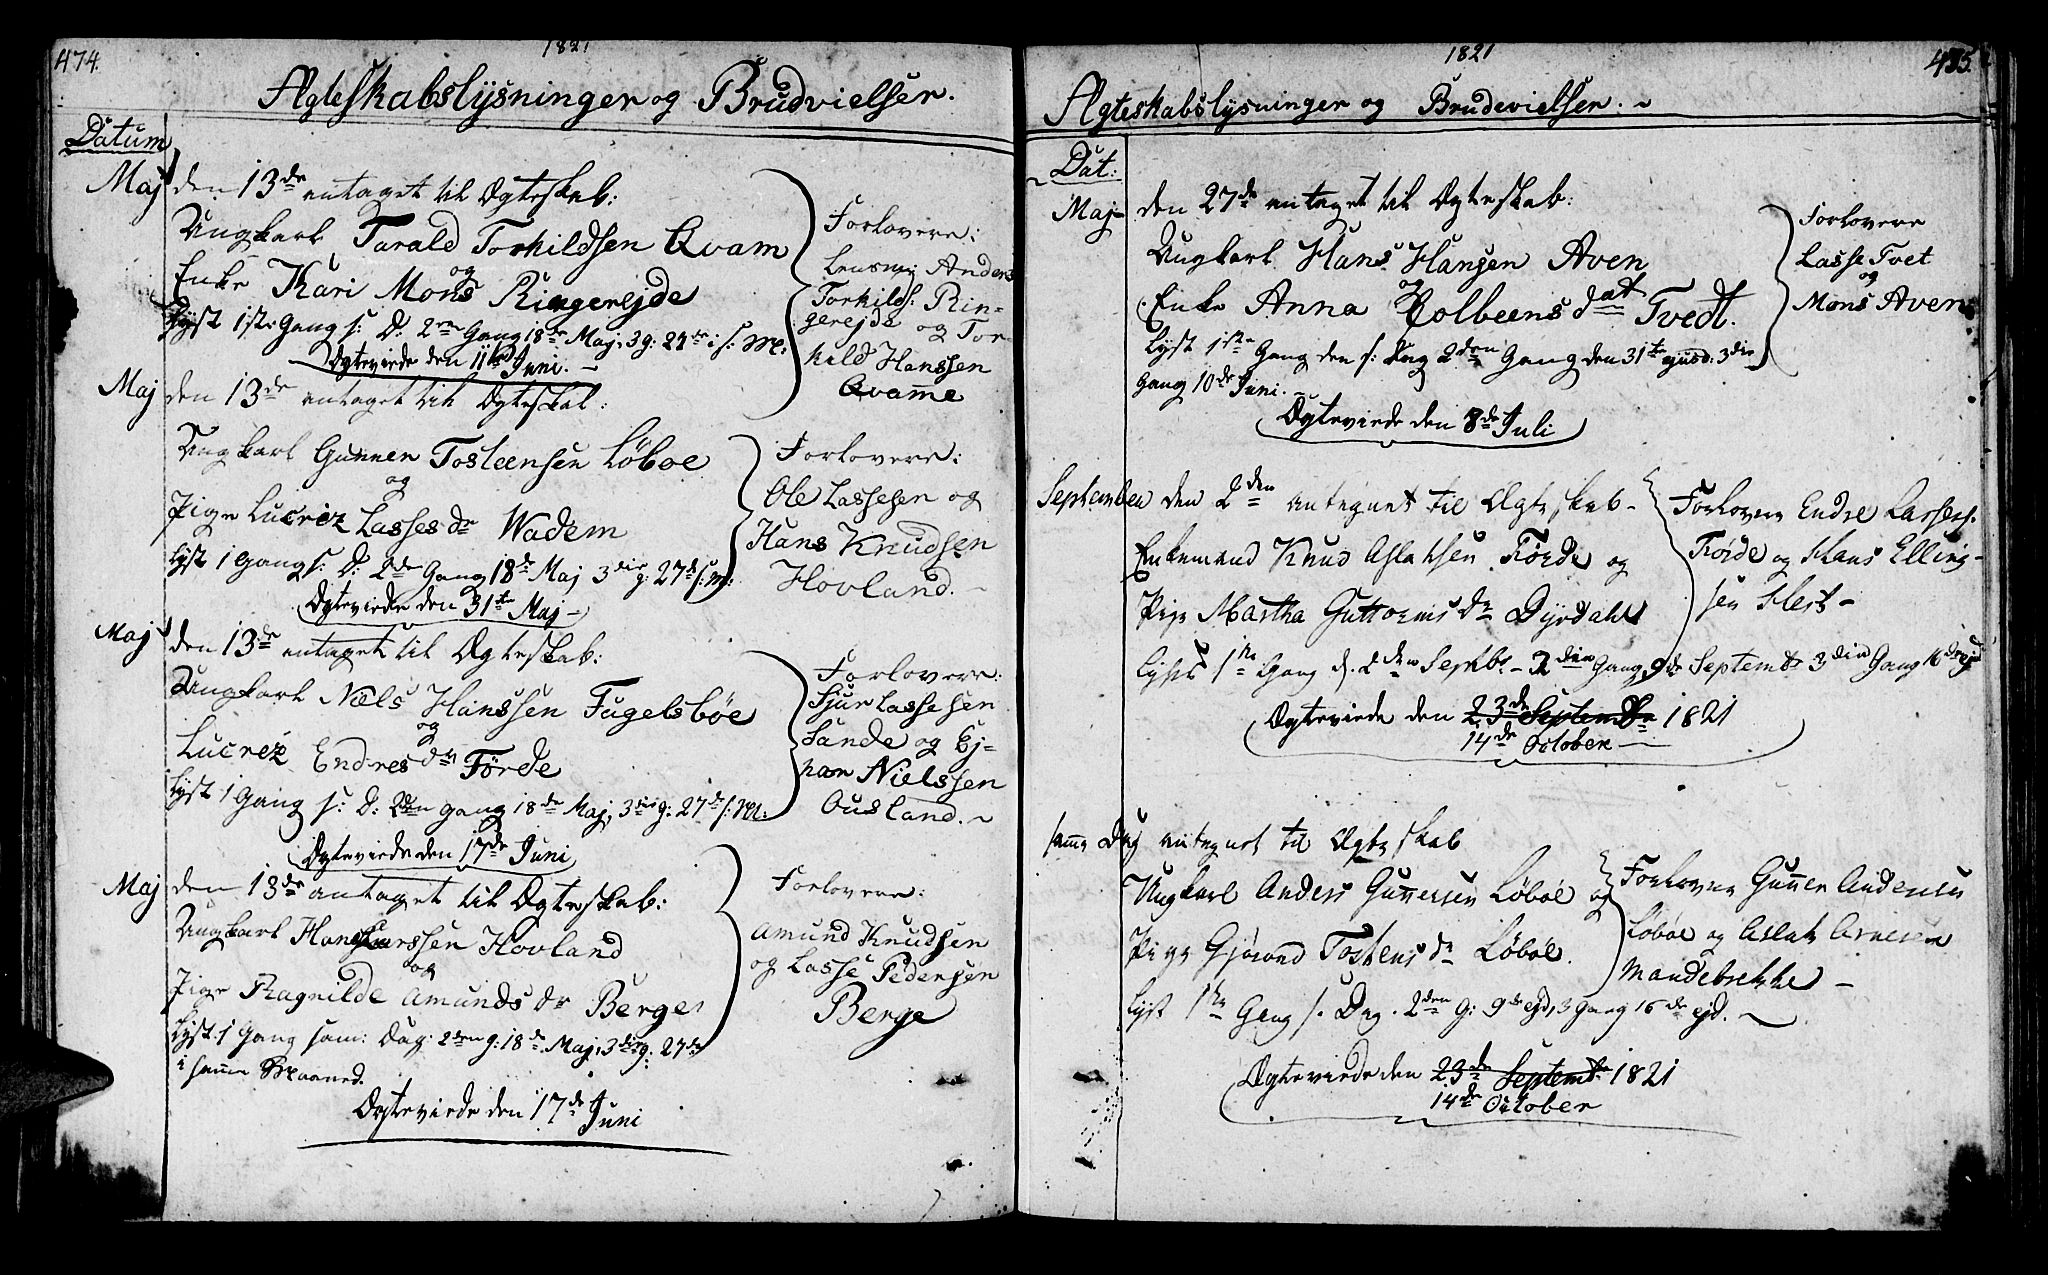 474.
1821
Ægteskabslysninger og Brudvielser.
Datum
Maj
den 13de antaget til Ægteskab:
Ungkarl Tarald Torkildsen Qvam
og
Enke Kari Mons Ringerejde
Lyst 1ste Gang s: D: 2den Gang 18de Maj, 3 g: 27de i s: M:
Ægteviede den 11te Juni.
Forlovere:
Lensm: Anders
Torkilds: Rin-
gerejde og Tor-
kild Hanssen
Qvamme
Maj
den 13de antaget til Ægteskab:
Ungkarl Gunner Tosteensen Løboe
og
Pige Lucrez Lasses dr Wadem
Lyst 1 Gang s: D: 2de Gang 18de Maj 3die g: 27de s: M:
Ægteviede den 31te Maj
Forlovere:
Ole Lassesen og
Hans Knudsen
Hovland.
Maj
den 13de antaget til Ægteskab:
Ungkarl Niels Hanssen Fugelsbøe
og
Lucrez Endres dr Førde
Lyst 1 Gang s: D: 2den gang 18de Maj, 3die g: 27de s: M:
Ægteviede den 17de Juni
Forlovere:
Sjur Lassesen
Sande og Ej-
nar Nielssen
Ousland.
Maj
den 13de antaget til Ægteskab:
Ungkarl Hans Larssen Hovland
og
Pige Ragnilde Amunds dr Berge
Lyst 1 Gang sam: Dag: 2den g: 18de Maj, 3die g: 27de
i samme Maaned.
Ægteviede den 17de Juni
Forlovere:
Amund Knudsen
og Lasse Pedersen
Berge
1821
475.
Ægteskabslysninger og Brudevielser.
Dat:
Maj
den 27de antaget til Ægteskab:
Ungkarl Hans Hansen Aven
og
Enke Anna Colbeens dat Tvedt.
Lyst 1ste Gang den s: Dag 2den Gang den 31te ejusd: 3die
Gang 10de Juni.
Ægteviede den 8de Juli
Forlovere
Lasse Tvet
og
Mons Aven
September den 2den antegnet til Ægteskab
Enkemand Knud Aslaksen Førde og
Pige Martha Guttorms dr Dyrdahl
Lyst 1ste Gang d. 2den Septbr 2den Gang 9de Septembr 3die Gang 16de ejd
Ægteviede den 23de Septembr 1821
14de October
Forlovere Endre Lasses.
Førde og Hans Elling-
sen Hest
samme Dag antegnet til Ægteskab
Ungkarl Anders Gunnersen Løbøe og
Pige Gjørond Tostens dr Løbøe.
Lyst 1ste Gang s. Dag. 2den G: 9de ejd, 3 Gang 16de ejd.
Ægteviede den 23de Septembr 1821
14de October
Forlovere Gunner Andersen
Løbøe og Aslak Arnesen
Mandebrekke